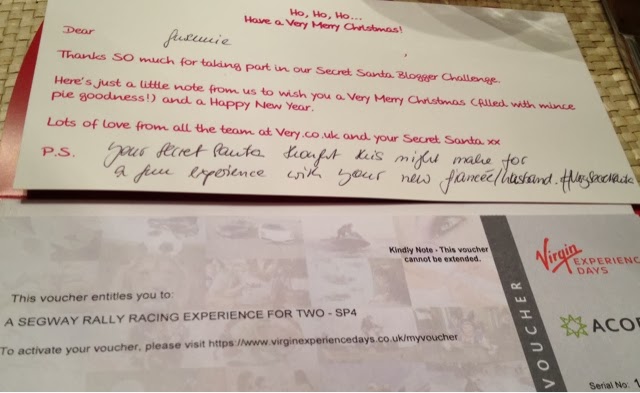 Ho, Ho, Ho...
Have a Very Merry Christmas!
Dear
Thanks SO much for taking part in our Secret Santa Blogger Challenge.
Here's just a little note from us to wish you a Very Merry Christmas (filled with mince
pie goodness!) and a Happy New Year.
Lots of love from all the team at Very.co.uk and your Secret Santa xx
P.S. Your Secret Santa thought this might make for
a fun experience with your new fiancée/husband.
Kindly Note - This voucher
cannot be extended.
This voucher entitles you to:
A SEGWAY RALLY RACING EXPERIENCE FOR TWO - SP4
To activate your voucher, please visit https://www.virginexperiencedays.co.uk/myvoucher
VOUCHER
Virgin
EXPERIENC
DAYS
ACO
Serial No: 1